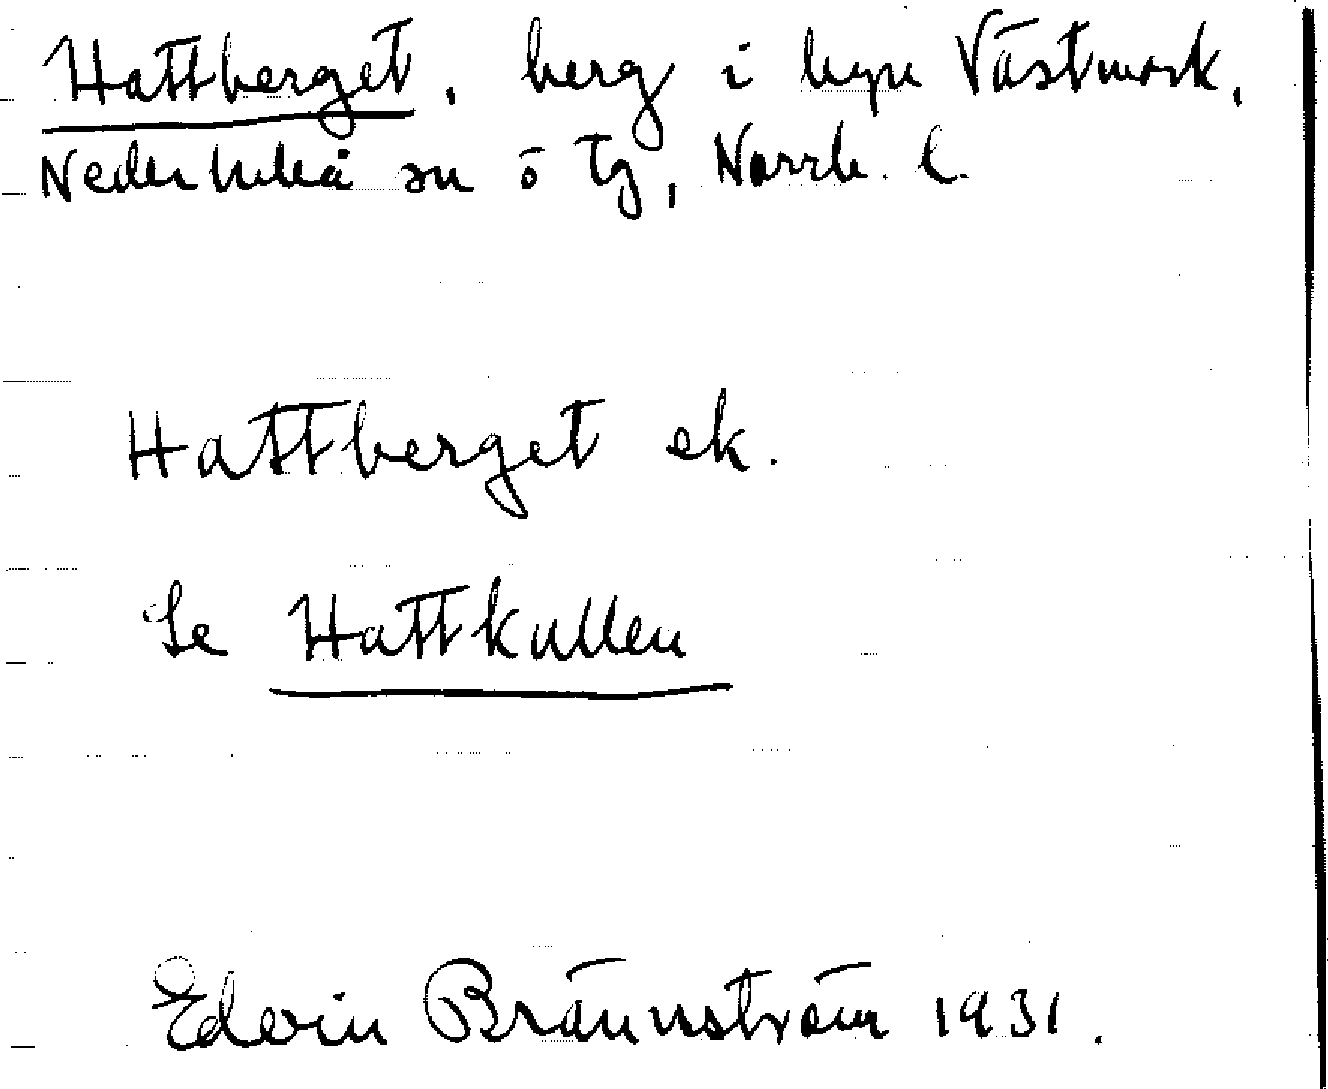 Hattberget, berg i byn Västmark,
Nederluleå sn ö tg, Norrb. l.
Hattberget ek.
Se Hattkullen
Edvin Brännström 1931.